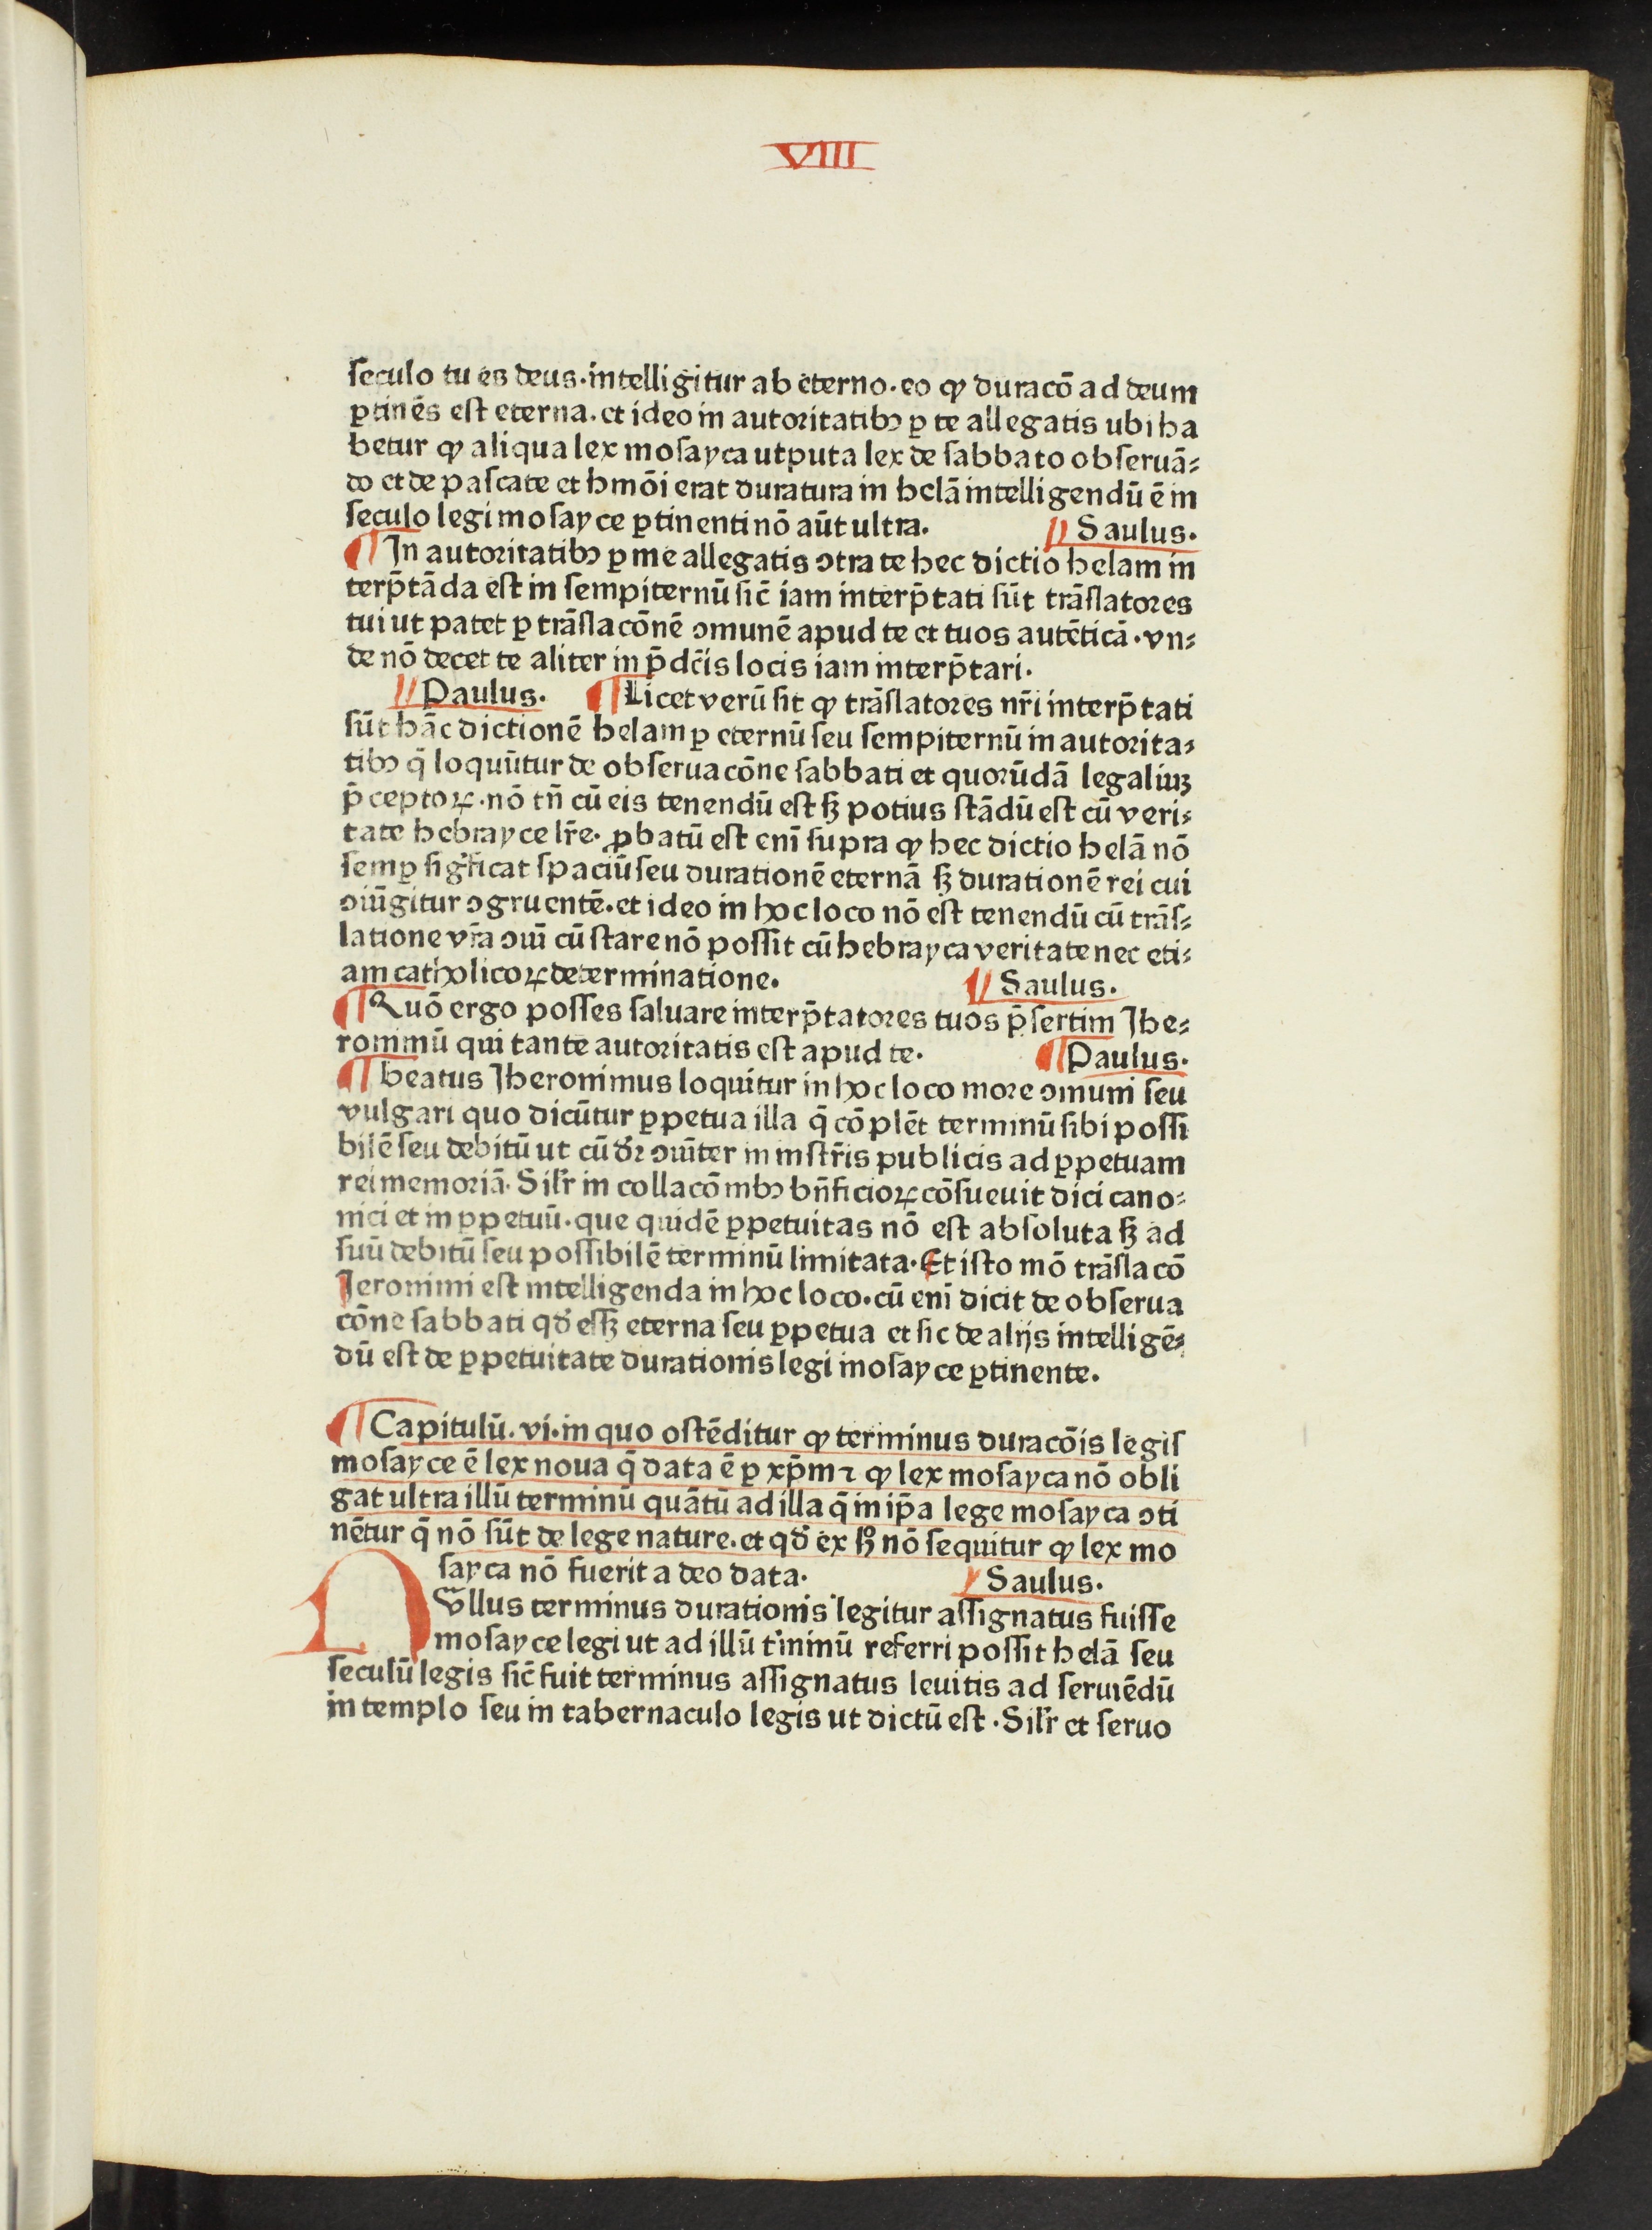 VIII
seculo tu es deus·intelligitur ab eterno·eo ꝙ duracō ad deum
ꝑtinēs est eterna·et ideo in autoritatibꝫ ꝑ te allegatis ubi ha
betur ꝙ aliqua lex mosayca utputa lex de sabbato obseruā⸗
do et de pascate et hmōi erat duratura in helā intelligendū ē in
seculo legi mosayce ꝑtinenti nō aūt ultra. Saulus·
¶ In autoritatibꝫ ꝑ me allegatis ↄtra te hec dictio helam in
terp̄tāda est in sempiternū sic̄ iam interp̄tati sūt trāslatores
tui ut patet ꝑ trāslacōnē ↄmunē apud te et tuos autēticā·vn⸗
de nō decet te aliter in p̄dc̄is locis iam interp̄tari·
Paulus· ¶ Licet verū sit ꝙ trāslatores nr̄i interp̄tati
sūt hāc dictionē helam ꝑ eternū seu sempiternū in autorita⸗
tibꝫ q̄ loquūtur de obseruacōne sabbati et quorūdā legaliuꝫ
p̄ceptoꝝ·nō tn̄ cū eis tenendū est sꝫ potius stādū est cū veri⸗
tate hebrayce lr̄e·ꝓbatū est eni̅ supra ꝙ hec dictio helā nō
semꝑ sigͥficat spaciū seu durationē eternā sꝫ durationē rei cui
ↄiūgitur ↄgruentē·et ideo in hoc loco nō est tenendū cū trās⸗
latione vr̄a ↄui̅ cū stare nō possit cū hebrayca veritate nec eti⸗
am catholicoꝝ determinatione. Saulus·
¶ Quō ergo posses saluare interp̄tatores tuos p̄sertim Jhe⸗
ronimū qui tante autoritatis est apud te· ¶ Paulus·
¶ beatus Jheronimus loquitur in hoc loco more ↄmuni seu
vulgari quo dicūtur ꝑpetua illa q̄ cōplēt terminū sibi possi
bilē seu debitū ut cū dr̄ ↄui̅ter in instr̄is publicis ad ꝑpetuam
rei memoriā·Silr̄ in collacōnibꝫ bn̄ficioꝝ cōsueuit dici cano⸗
nici et in ꝑpetuū·que quidē ꝑpetuitas nō est absoluta sꝫ ad
suū debitū seu possibilē terminū limitata·Et isto mō trāslacō
Jeronimi est intelligenda in hoc loco·cū eni̅ dicit de obserua
cōne sabbati qd̄ essꝫ eterna seu ꝑpetua et sic de alijs intelligē⸗
dū est de ꝑpetuitate durationis legi mosayce ꝑtinente.
¶ Capitulū·vi·in quo ostēditur ꝙ terminus duracōis legis
mosayce ē lex noua q̄ data ē ꝑ xp̄m ⁊ ꝙ lex mosayca nō obli
gat ultra illū terminū quātū ad illa q̄ in ip̄a lege mosayca ↄti
nētur q̄ nō sūt de lege nature·et qd̄ ex hͦ nō sequitur ꝙ lex mo
sayca nō fuerit a deo data· Saulus·
Nullus terminus durationis legitur assignatus fuisse
mosayce legi ut ad illū t̓minū referri possit helā seu
seculū legis sic̄ fuit terminus assignatus leuitis ad seruiēdū
in templo seu in tabernaculo legis ut dictū est·Silr̄ et seruo